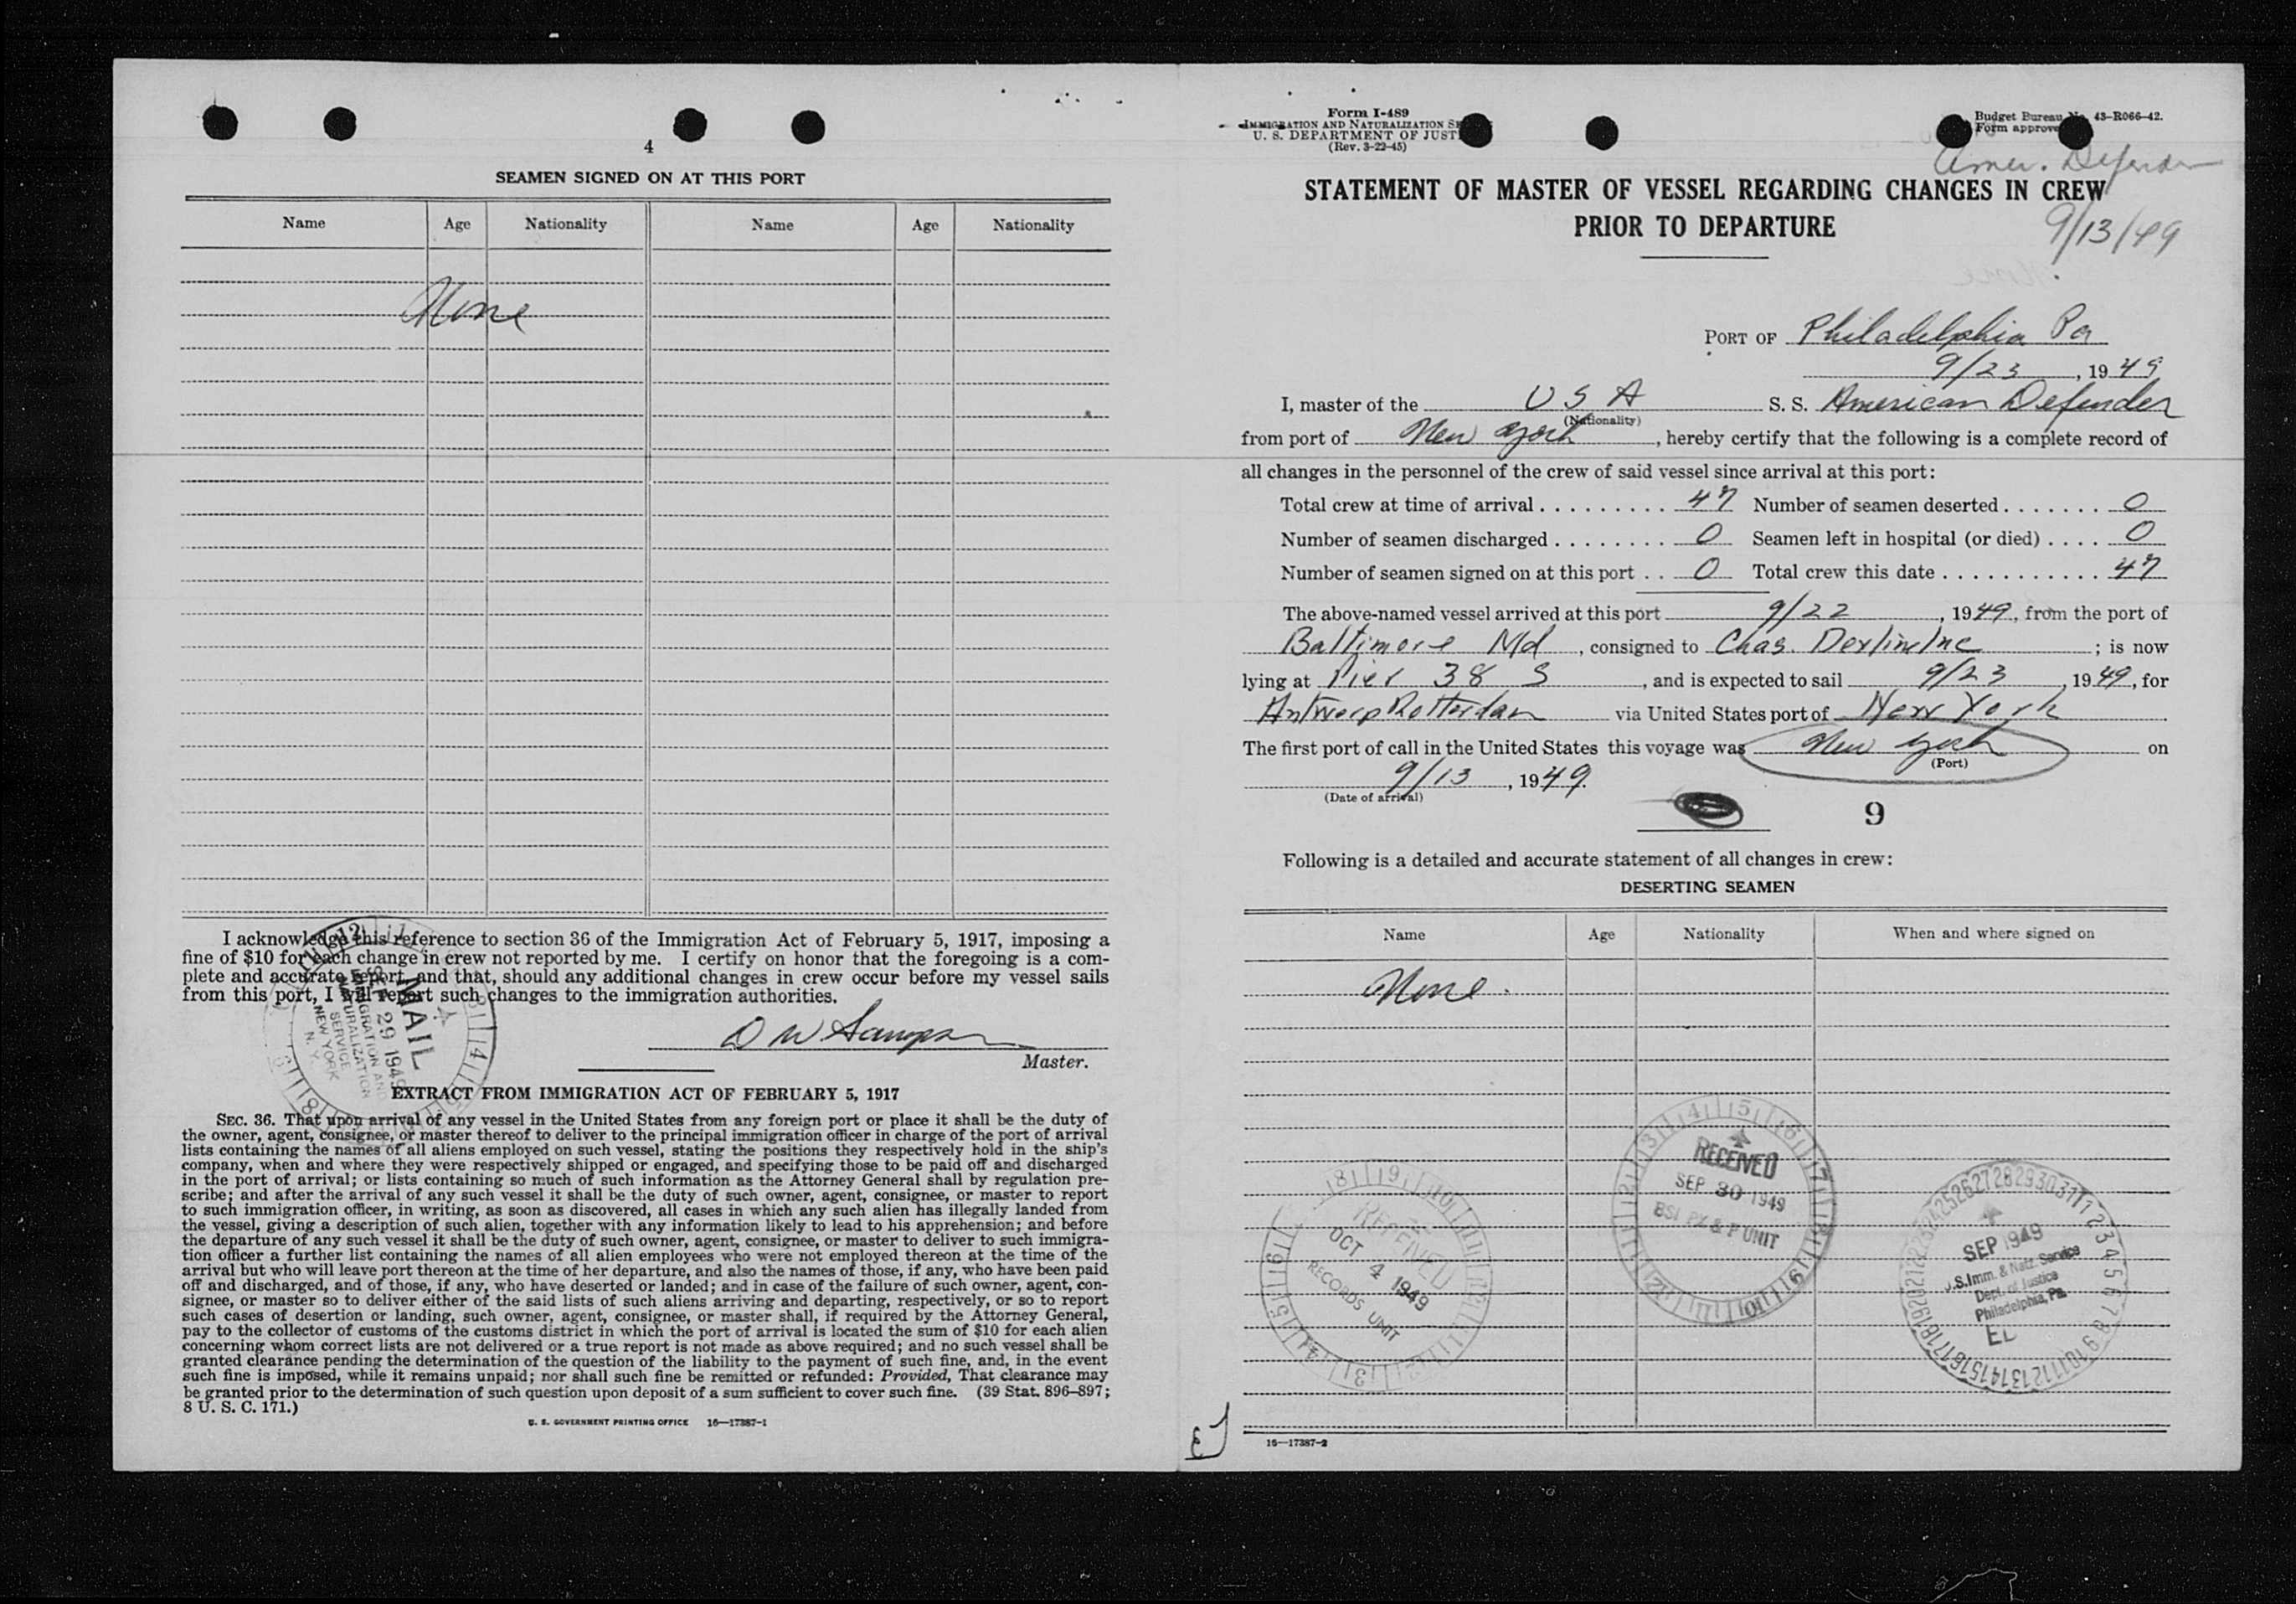 4
SEAMEN SIGNED ON AT THIS PORT
Name Age Nationality Name Age Nationality
None
I acknowledge this reference to section 36 of the Immigration Act of February 5, 1917, imposing a
fine of $10 for each change in crew not reported by me. I certify on honor that the foregoing is a com-
plete and accurate report, and that, should any additional changes in crew occur before my vessel sails
from this port, I will report such changes to the immigration authorities.
D W
Master.
MAIL
29 1949
IMMIGRATION AND
NATURALIZATION
SERVICE
NEW YORK
N. Y.
EXTRACT FROM IMMIGRATION ACT OF FEBRUARY 5, 1917
SEC. 36. That upon arrival of any vessel in the United States from any foreign port or place it shall be the duty of
the owner, agent, consignee, or master thereof to deliver to the principal immigration officer in charge of the port of arrival
lists containing the names of all aliens employed on such vessel, stating the positions they respectively hold in the ship's
company, when and where they were respectively shipped or engaged, and specifying those to be paid off and discharged
in the port of arrival; or lists containing so much of such information as the Attorney General shall by regulation pre-
scribe; and after the arrival of any such vessel it shall be the duty of such owner, agent, consignee, or master to report
to such immigration officer, in writing, as soon as discovered, all cases in which any such alien has illegally landed from
the vessel, giving a description of such alien, together with any information likely to lead to his apprehension; and before
the departure of any such vessel it shall be the duty of such owner, agent, consignee, or master to deliver to such immigra-
tion officer a further list containing the names of all alien employees who were not employed thereon at the time of the
arrival but who will leave port thereon at the time of her departure, and also the names of those, if any, who have been paid
off and discharged, and of those, if any, who have deserted or landed; and in case of the failure of such owner, agent, con-
signee, or master so to deliver either of the said lists of such aliens arriving and departing, respectively, or so to report
such cases of desertion or landing, such owner, agent, consignee, or master shall, if required by the Attorney General,
pay to the collector of customs of the customs district in which the port of arrival is located the sum of $10 for each alien
concerning whom correct lists are not delivered or a true report is not made as above required; and no such vessel shall be
granted clearance pending the determination of the question of the liability to the payment of such fine, and, in the event
such fine is imposed, while it remains unpaid; nor shall such fine be remitted or refunded: Provided, That clearance may
be granted prior to the determination of such question upon deposit of a sum sufficient to cover such fine. (39 Stat. 896–897;
8 U. S. C. 171.)
U. S. GOVERNMENT PRINTING OFFICE 16—17387-1
Form I-489
IMMIGRATION AND NATURALIZATION
U. S. DEPARTMENT OF JUST
(Rev. 3-22-45)
Budget Bureau No. 43-R066-42.
Form approve
Amer. Defender
STATEMENT OF MASTER OF VESSEL REGARDING CHANGES IN CREW
PRIOR TO DEPARTURE
9/13/49
PORT OF Philadelphia Pa
9/23, 1949
I, master of the U S A S. S. American Defender
(Nationality)
from port of New York, hereby certify that the following is a complete record of
all changes in the personnel of the crew of said vessel since arrival at this port:
Total crew at time of arrival . . . . . . . . . 47 Number of seamen deserted . . . . . . . 0
Number of seamen discharged . . . . . . . . 0 Seamen left in hospital (or died) . . . . 0
Number of seamen signed on at this port . . 0 Total crew this date . . . . . . . . . . . 47
The above-named vessel arrived at this port 9/22, 1949, from the port of
Baltimore Md, consigned to Chas. Inc ; is now
lying at Pier 38 S, and is expected to sail 9/23, 1949, for
Antwerp Rotterdam via United States port of New York
The first port of call in the United States this voyage was New York on
(Port)
9/13, 1949.
(Date of arrival)
9
Following is a detailed and accurate statement of all changes in crew:
DESERTING SEAMEN
Name Age Nationality When and where signed on
None.
RECEIVED
SEP 30 1949
BSI PX & P UNIT
RECEIVED
OCT 4 1949
RECORDS UNIT
SEP 1949
U.S.Imm. & Natz. Service
Dept. of Justice
Philadelphia, Pa.
EL
16—17387-2